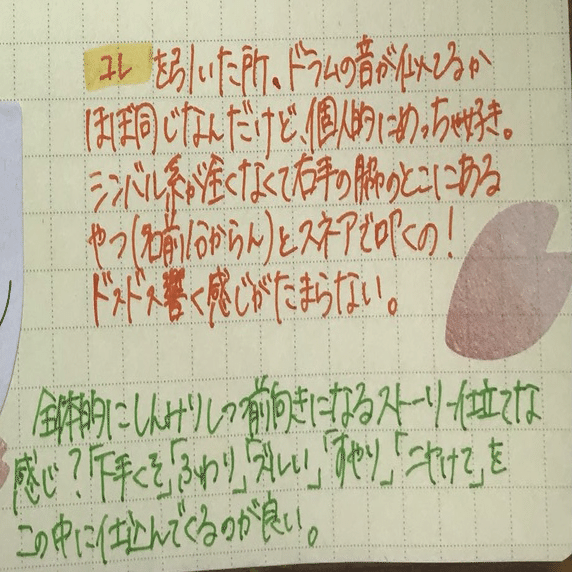 コレを引いた所、ドラムの音が似てるか
ほぼ同じなんだけど、個人的にめっちゃ好き。
シンバル系が全くなくて右手の脇のとこにある
やつ(名前分からん)とスネアで叩くの!
ドスドス響く感じがたまらない。
全体的にしんみりしつ前向きになるストーリー仕立てな
感じ?「下手くそ」「ふわり」「ズルい」「すやり」「ニヤけて」を
この中に仕込んでくるのが良い。